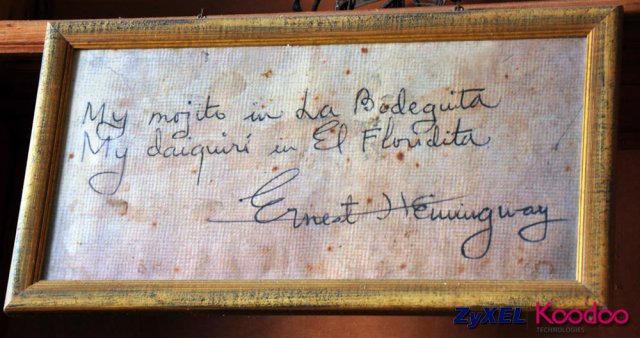 My mojito in La Bodeguita
My daiquirí in El Floridita
Ernest Hemingway
ZyXEL Koodoo
TECHNOLOGIES